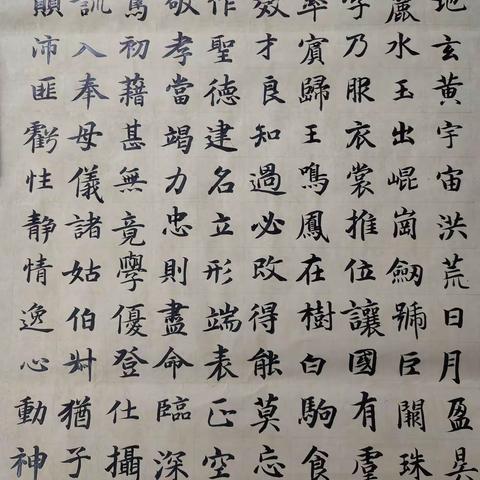 地玄黃宇宙洪荒日月盈昃
麗水玉出崐崗劔號巨闕珠
字乃服衣裳推位讓國有虞
率賓歸王鳴鳳在樹白駒食
效才良知過必改得能莫忘
作聖德建名立形端表正空
敬孝當竭力忠則盡命臨深
篤初藉甚無竟學優登仕攝
訓入奉母儀諸姑伯叔猶子
顛沛匪虧性靜情逸心動神